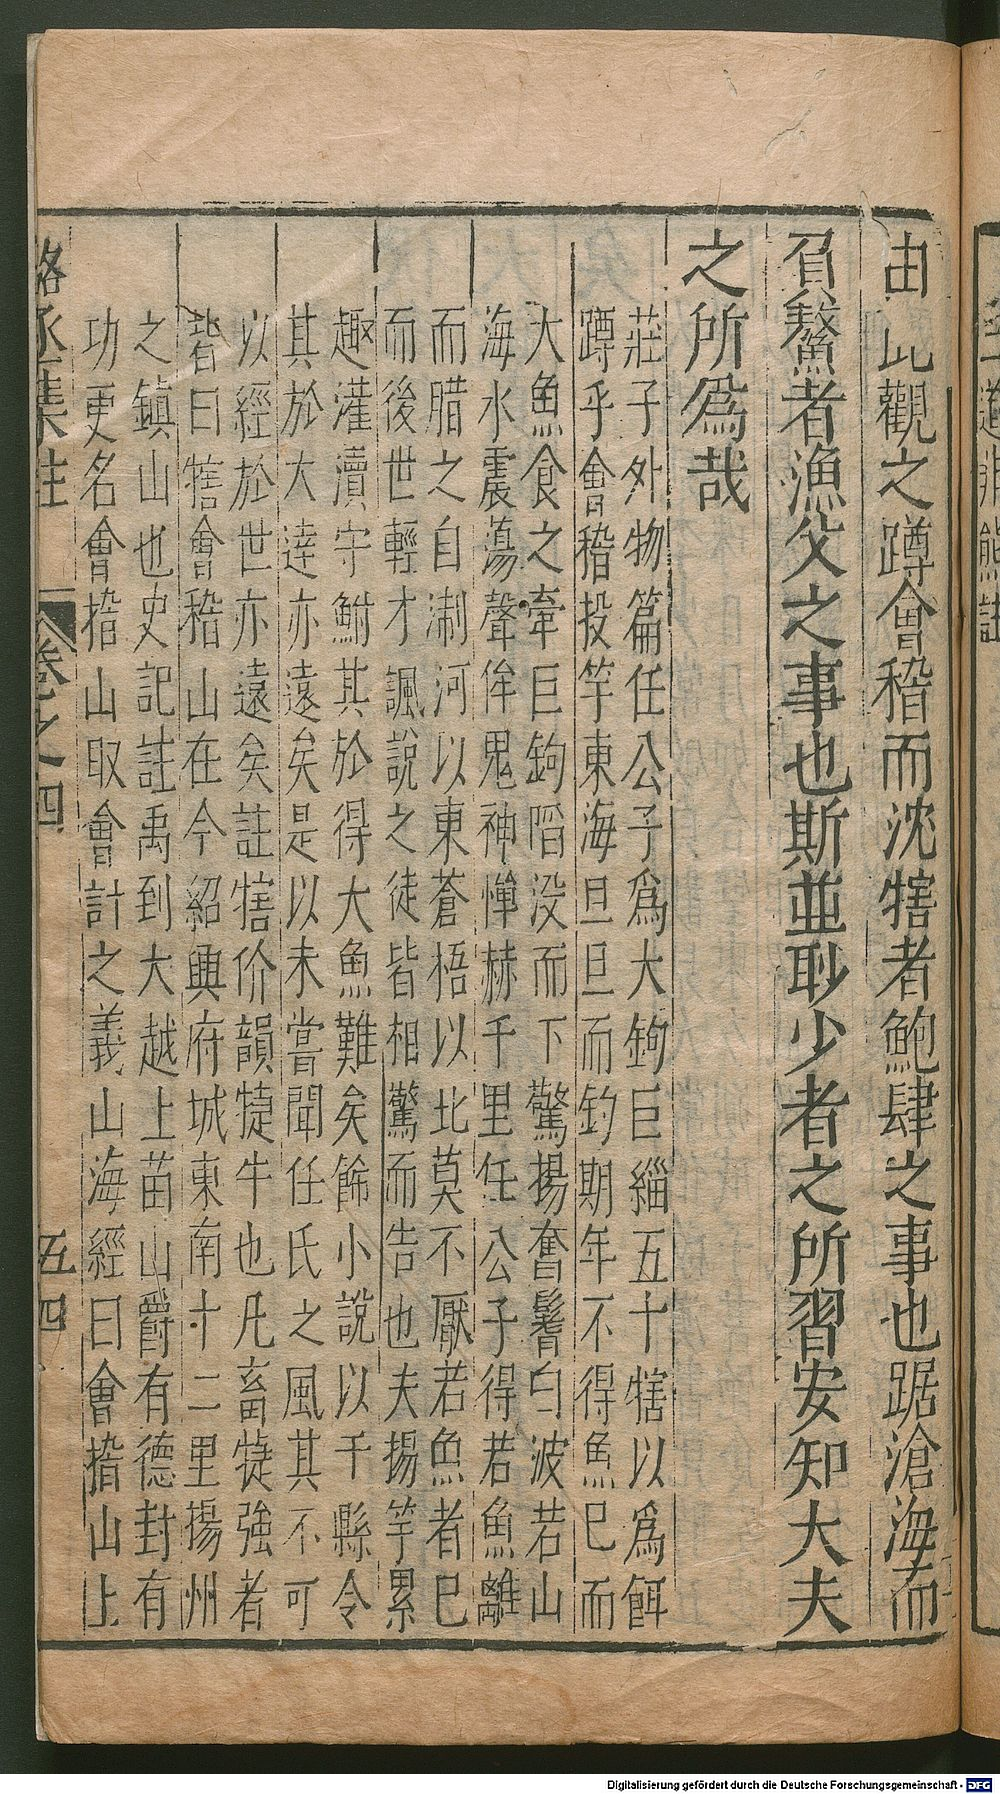 由此觀之蹲會稽而沈犗者鮑肆之事也踞滄海而
負鰲者漁父之事也斯並眇少者之所習安知大夫
之所爲哉
莊子外物篇任公子爲大鉤巨緇五十犗以爲餌
蹲乎會稽投竿東海旦旦而釣期年不得魚已而
大魚食之牽巨鉤䧟没而下驚揚奮鬐白波若山
海水震蕩聲侔鬼神憚赫千里任公子得若魚離
而腊之自淛河以東蒼梧以北莫不厭若魚者已
而後世輕才諷說之徒皆相驚而告也夫揚竿累
趣灌瀆守鮒其於得大魚難矣餙小說以干縣令
其於大達亦遠矣是以未嘗聞任氏之風其不可
以經於世亦遠矣註犗价韻犍牛也凡畜犍強者
皆曰犗會稽山在今紹興府城東南十二里揚州
之鎮山也史記註禹到大越上苗山爵有德封有
功更名會稽山取會計之義山海經曰會稽山上
駱丞集註
卷之四
五四
Digitalisierung gefördert durch die Deutsche Forschungsgemeinschaft - DFG